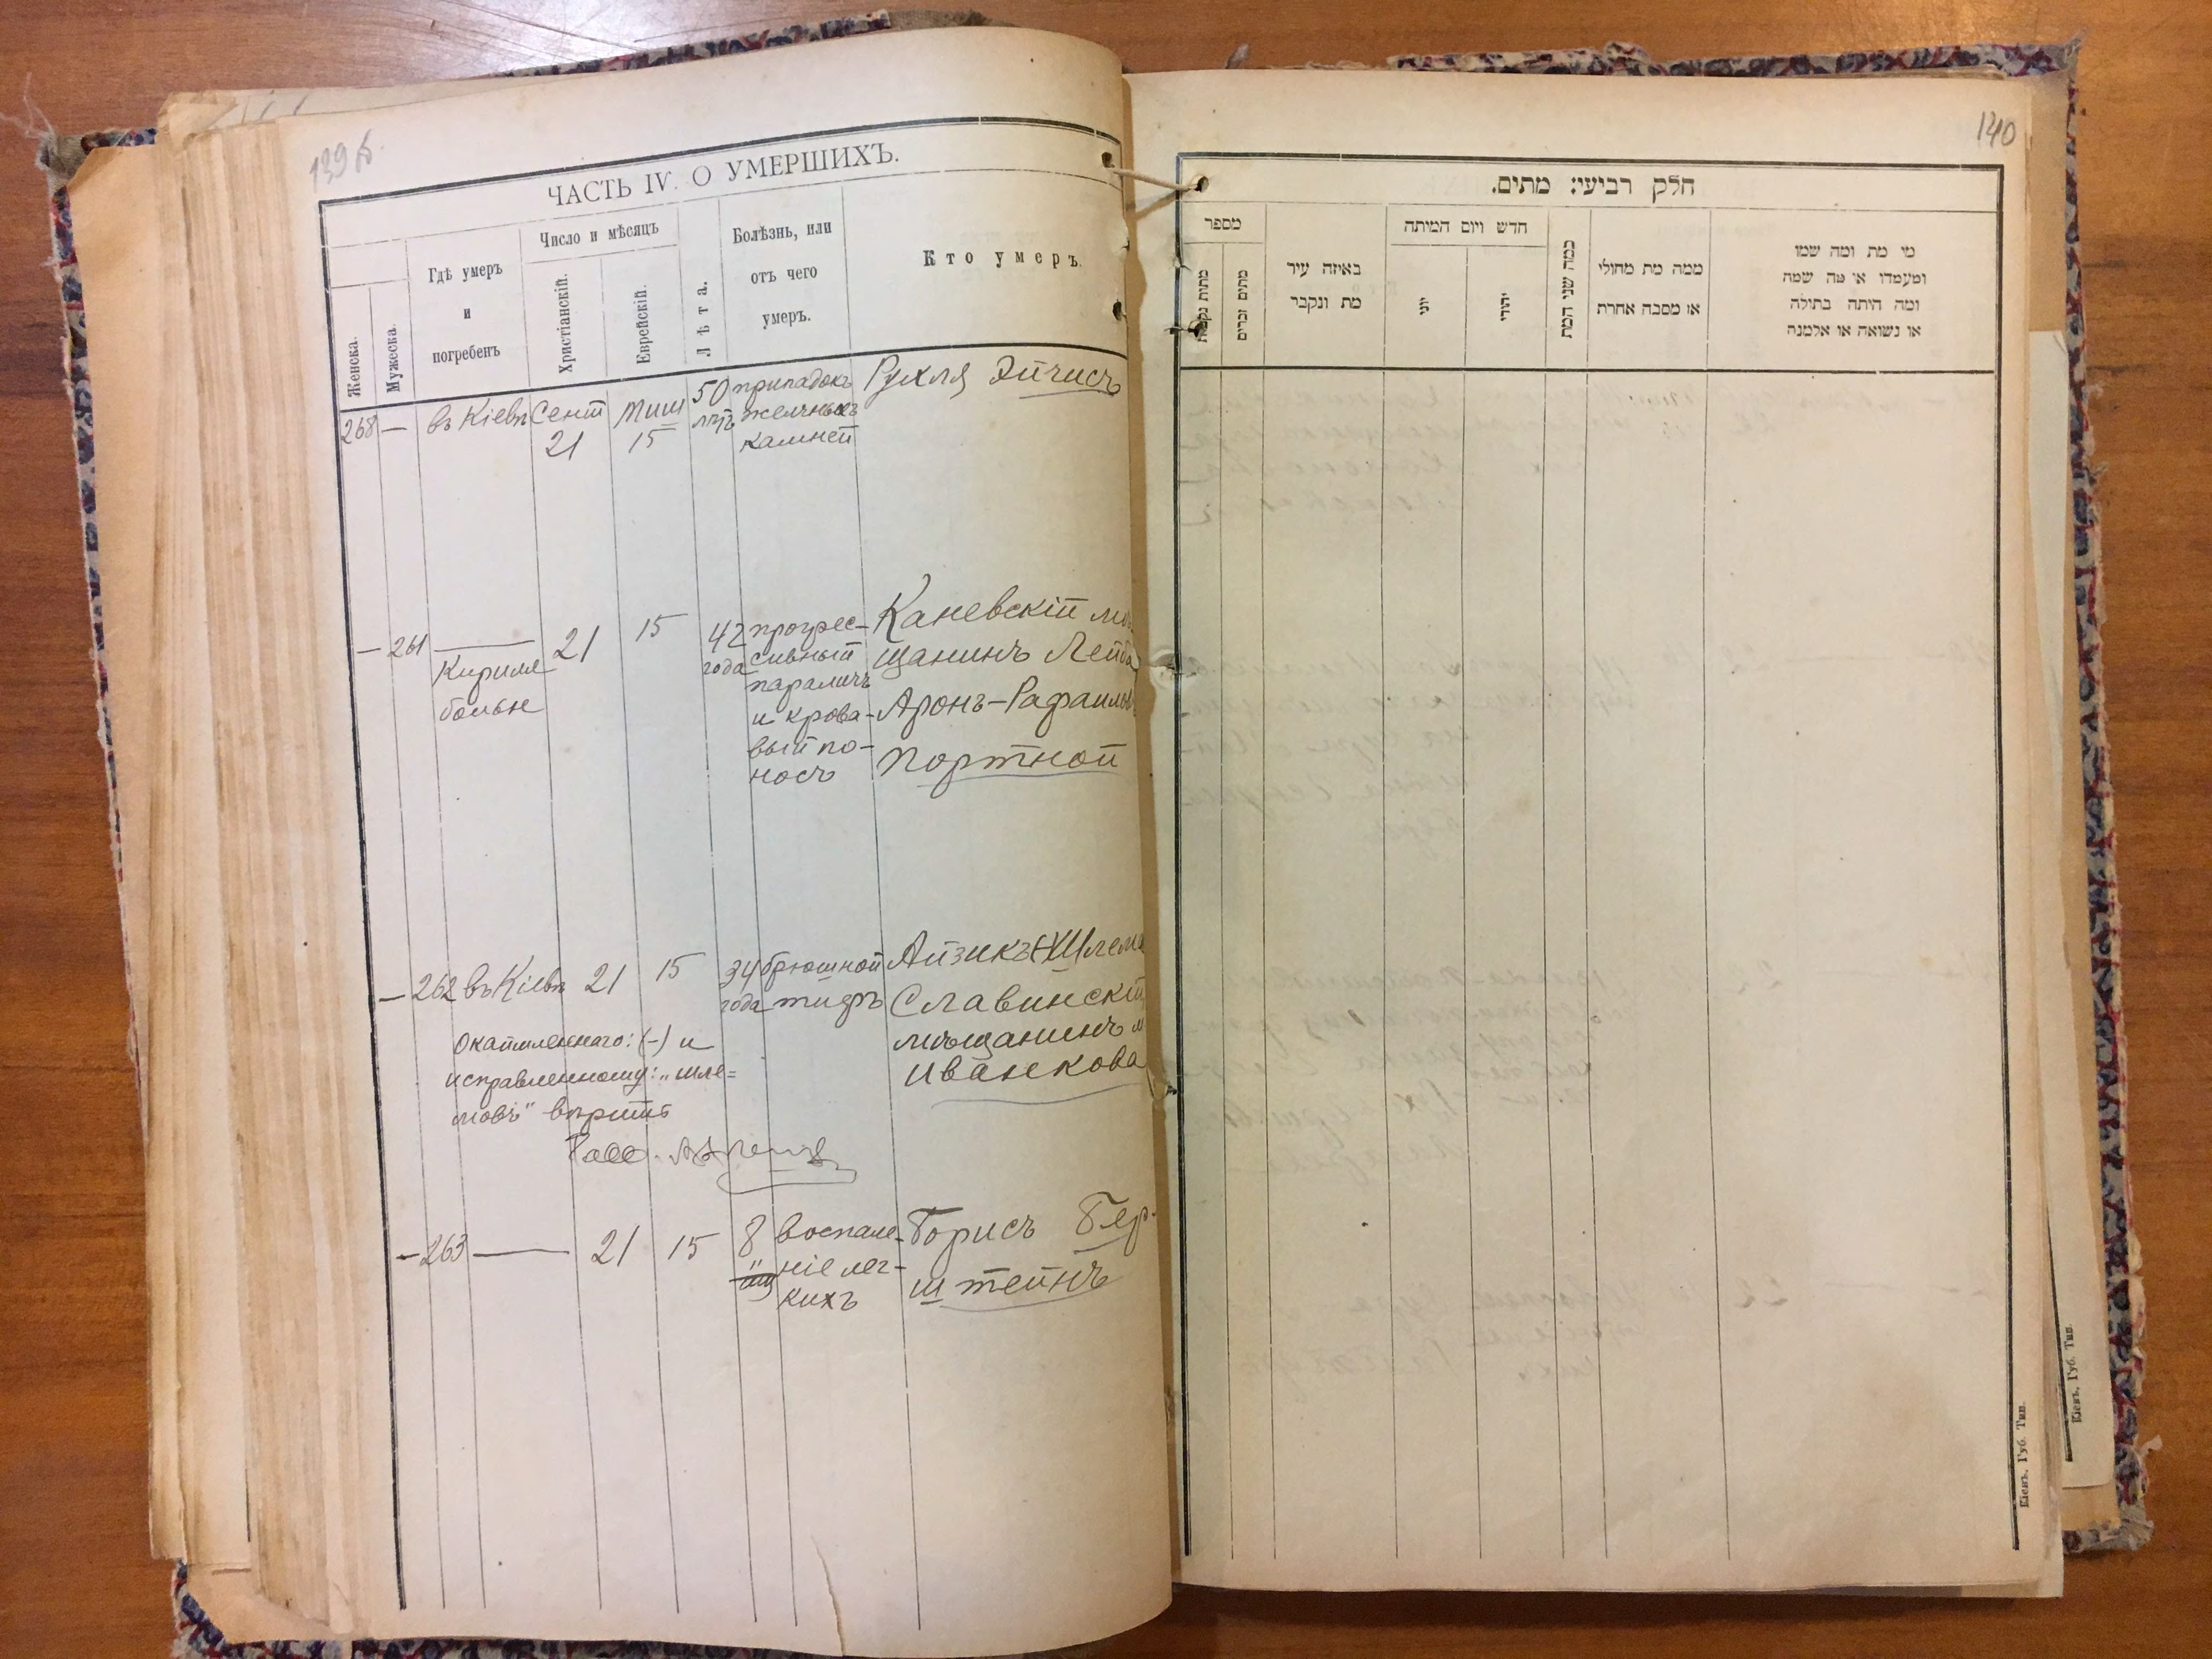 139 б.
ЧАСТЬ IV. О УМЕРШИХЪ.
Женска.
Мужеска.
Гдѣ умеръ
и
погребенъ
Число и мѣсяцъ
Христіанскій.
Еврейскій.
Лѣта.
Болѣзнь, или
отъ чего
умеръ.
Кто умеръ.
268 — въ Кіевѣ Сент 21 Тиш 15 50 лѣтъ
припадокъ
желчныхъ
камней
Рухля Эйчисъ
— 261 —— Кирилл больн 21 15 42 года
прогрес-
сивный
параличъ
и крова-
вый по-
носъ
Каневскій мѣ
щанинъ Лейба
Аронъ-Рафаилов
Портной
— 262 въ Кіевѣ 21 15 34 года
брюшной
тифъ
Айзикъ (-) Шлема
Славинскій
мѣщанинъ м
Иванкова
окаймленнаго: (-) и
исправленному: „Шле=
мовъ" вѣрить
Рабб.
— 263 —— 21 15 8 "
воспале-
ніе лег-
кихъ
Борисъ Бер-
штейнъ
140
חלק רביעי: מתים.
מספר
מתות נקבות
מתים זכרים
באיזה עיר
מת ונקבר
חדש ויום המיתה
יוני
יהודי
כמה שני המת
ממה מת מחולי
או מסבה אחרת
מי מת ומה שמו
ומעמדו או מה שמה
ומה היתה בתולה
או נשואה או אלמנה
Кіевъ, Губ. Тип.
Кіевъ, Губ. Тип.